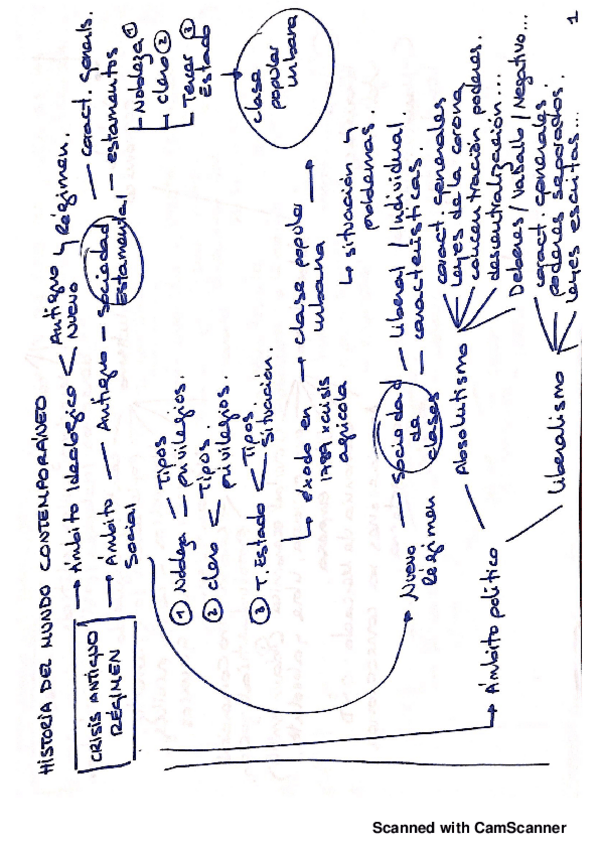 HISTORIA DEL MUNDO CONTEMPORÁNEO
CRISIS ANTIGUO
RÉGIMEN
→ Ámbito Ideológico < Antiguo y Régimen.
Nuevo
→ Ámbito
Social
— Antiguo — Sociedad
Estamental
— caract. generls.
— estamentos
Nobleza ①
Clero ②
Tercer ③
Estado
clase
popular
urbana
① Nobleza < Tipos
privilegios.
② Clero < Tipos.
privilegios.
③ T. Estado < Tipos
Situación.
↳ éxodo en
1789 x crisis
agrícola
→ clase popular
urbana
↳ situación y
problemas.
Nuevo
Régimen
— Sociedad
de
clases
— Liberal / Individual.
— características.
→ Ámbito político
Absolutismo
caract. generales
leyes de la corona
concentración poderes.
descentralización...
Deberes / Vasallo / Negativo...
Liberalismo
caract. generales
poderes separados.
leyes escritas...
1
Scanned with CamScanner